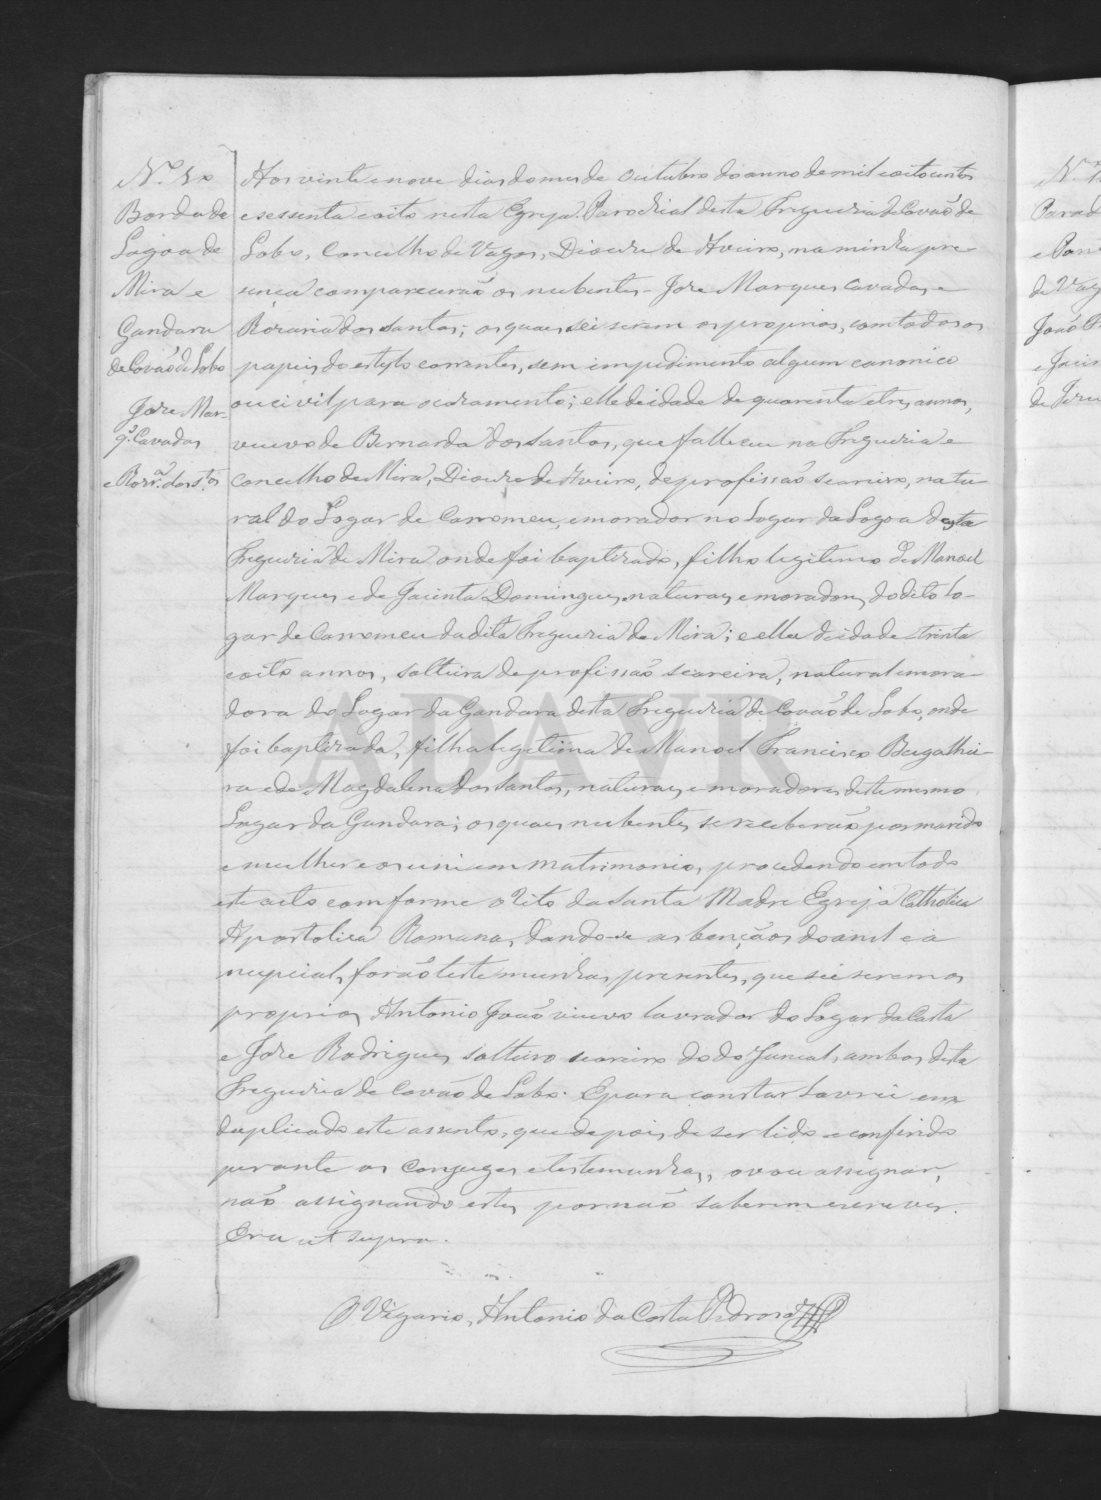 Borda da
Lagoa de
Mira e
Gandara
de Covão de Lobo
Joze Mar-
q.s Cavadas
e Rozr.a dos S.tos
Aos vinte e nove dias do mes de Outubro do anno de mil e oito centos
e sessenta e oito nesta Egreja Parochial desta Freguezia de Covaõ de
Lobo, Concelho de Vagos, Diocese de Aveiro, na minha pre-
sença compareceraõ os nubentes - Joze Marques Cavadas e
Rozaria dos Santos; os quaes sei serem os proprios, com todos os
papeis do estylo correntes, sem impedimento algum canonico
ou civil para o cazamento; elle de idade de quarenta e tres annos,
viuvo de Bernarda dos Santos, que falleceu na Freguezia e
Concelho de Mira, Diocese de Aveiro, de profissaõ seareiro, natu-
ral do Logar de Carromeu, e morador no Logar da Lagoa desta
Freguezia de Mira onde foi baptizado, filho legitimo de Manoel
Marques e de Jacinta Domingues, naturaes e moradores do dito lo-
gar de Carromeu da dita Freguezia de Mira; e ella de idade trinta
e oito annos, solteira de profissaõ seareira, natural e mora-
dora do Logar da Gandara desta Freguezia de Covaõ de Lobo, onde
foi baptizada, filha legitima de Manoel Francisco
ra e de Magdalena dos Santos, naturaes e moradores deste mesmo
Logar da Gandara; os quaes nubentes se receberaõ por marido
e mulher e os uni em matrimonio, procedendo em todo
este acto comforme o Rito da Santa Madre Egreja Catholica
Apostolica Romana, dando-se as bençãos do annel e a
nupcial, foraõ testemunhas prezentes, que sei serem os
proprios Antonio Joaõ viuvo lavrador do Logar da
e Joze Rodrigues solteiro seareiro do do Juncal, ambos desta
Freguezia de Covaõ de Lobo. E para constar lavrei em
duplicado este assento, que depois de ser lido e conferido
perante os conjuges e testemunhas, o vou assignar,
naõ assignando estes por naõ saberem escrever.
Era ut supra.
O Vigario, Antonio da Costa Pedroza
ADAVR